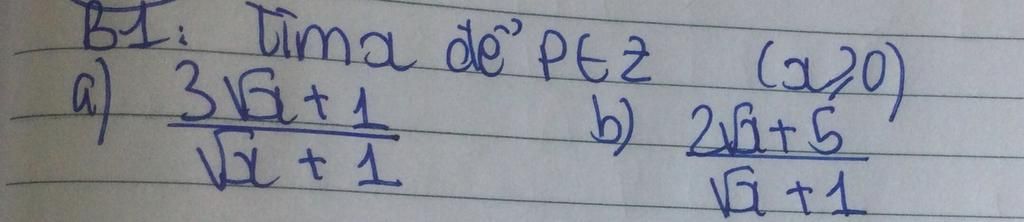 B1: Tìm a để P ∈ Z (x ≥ 0)
a) (3√x + 1)/(√x + 1) b) (2√x + 5)/(√x + 1)